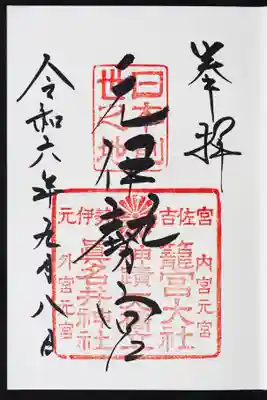 奉拝
元伊勢宮
令和六年九月八日
日本
世之地
元伊勢
吉佐宮
内宮元宮
籠宮大社
眞名井神社
外宮元宮